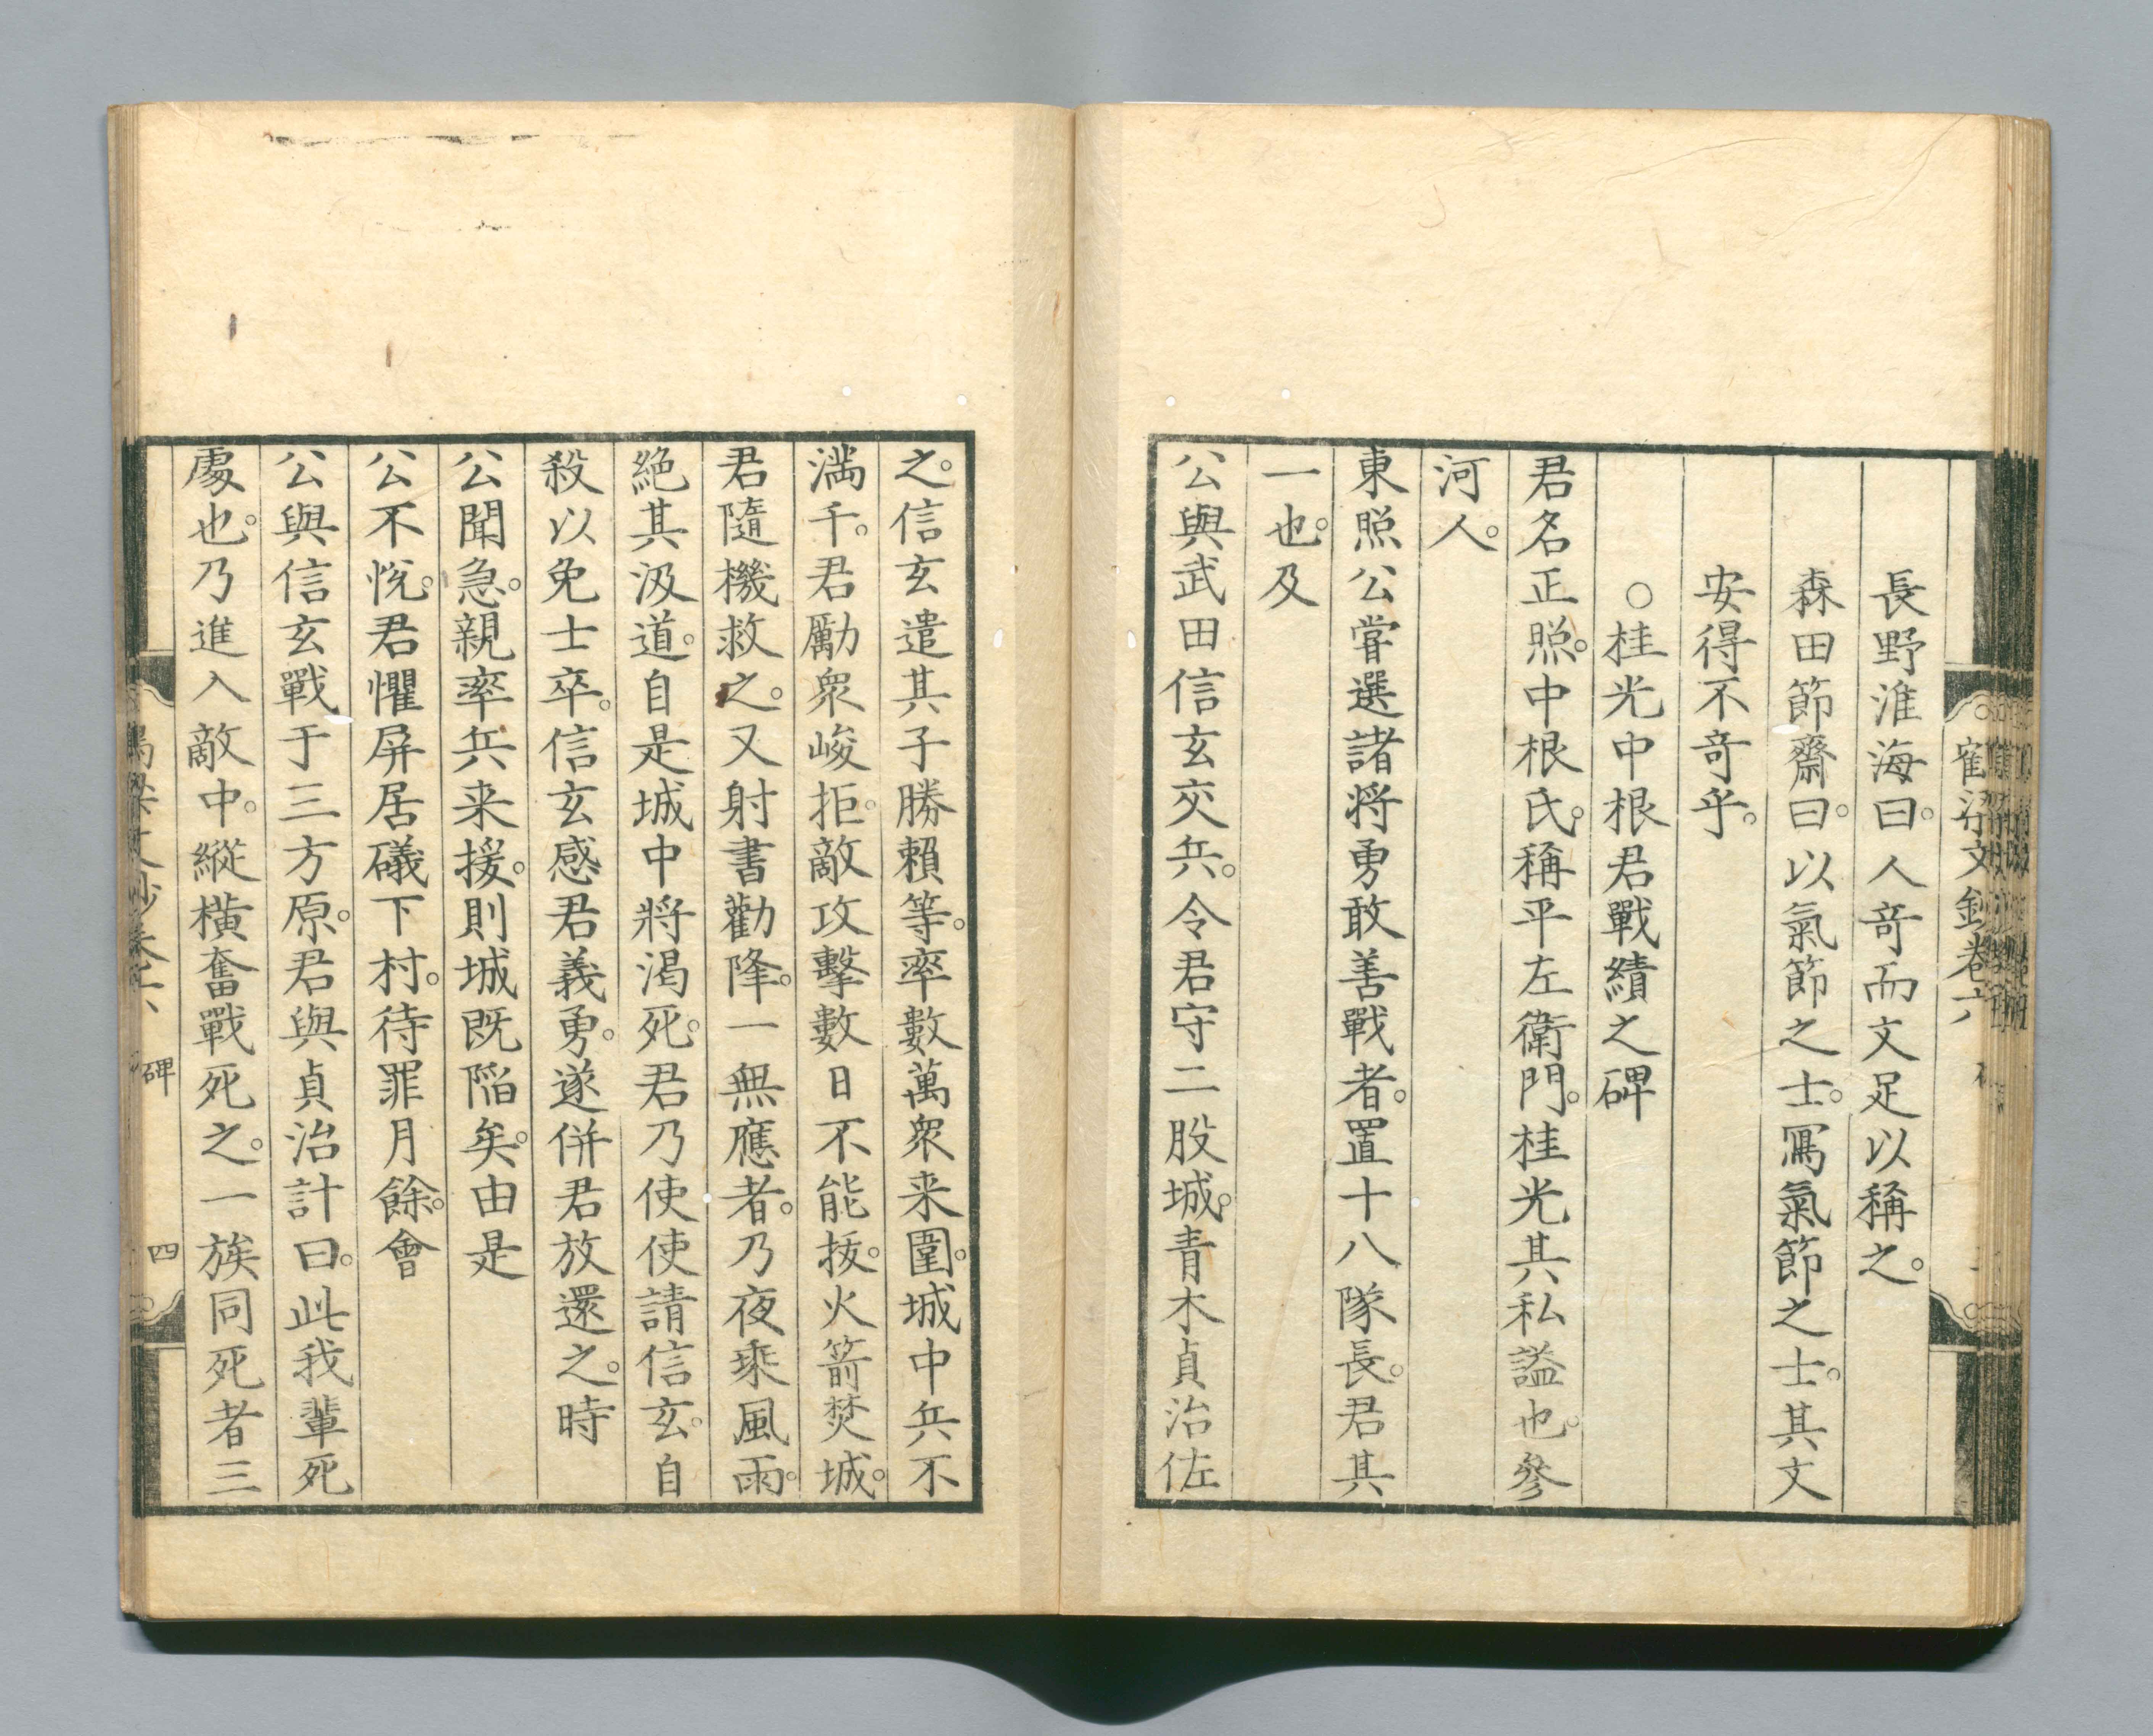 長野淮海曰。人竒而文足以稱之。
森田節齋曰。以氣節之士。寫氣節之士。其文
安得不竒乎。
○桂光中根君戰績之碑
君名正照。中根氏。稱平左衛門。桂光其私謚也。參
河人。
東照公嘗選諸将勇敢善戰者。置十八隊長。君其
一也。及
公與武田信玄交兵。令君守二股城。青木貞治佐
之。信玄遣其子勝賴等。率數萬衆来圍。城中兵不
満千。君勵衆峻拒。敵攻擊數日不能拔。火箭焚城。
君隨機救之。又射書勸降。一無應者。乃夜乘風雨。
絶其汲道。自是城中將渴死。君乃使使請信玄。自
殺以免士卒。信玄感君義勇。遂併君放還之。時
公聞急。親率兵来援。則城既陷矣。由是
公不悅。君懼屏居礒下村。待罪月餘。會
公與信玄戰于三方原。君與貞治計曰。此我輩死
處也。乃進入敵中。縱橫奮戰死之。一族同死者三
碑 四